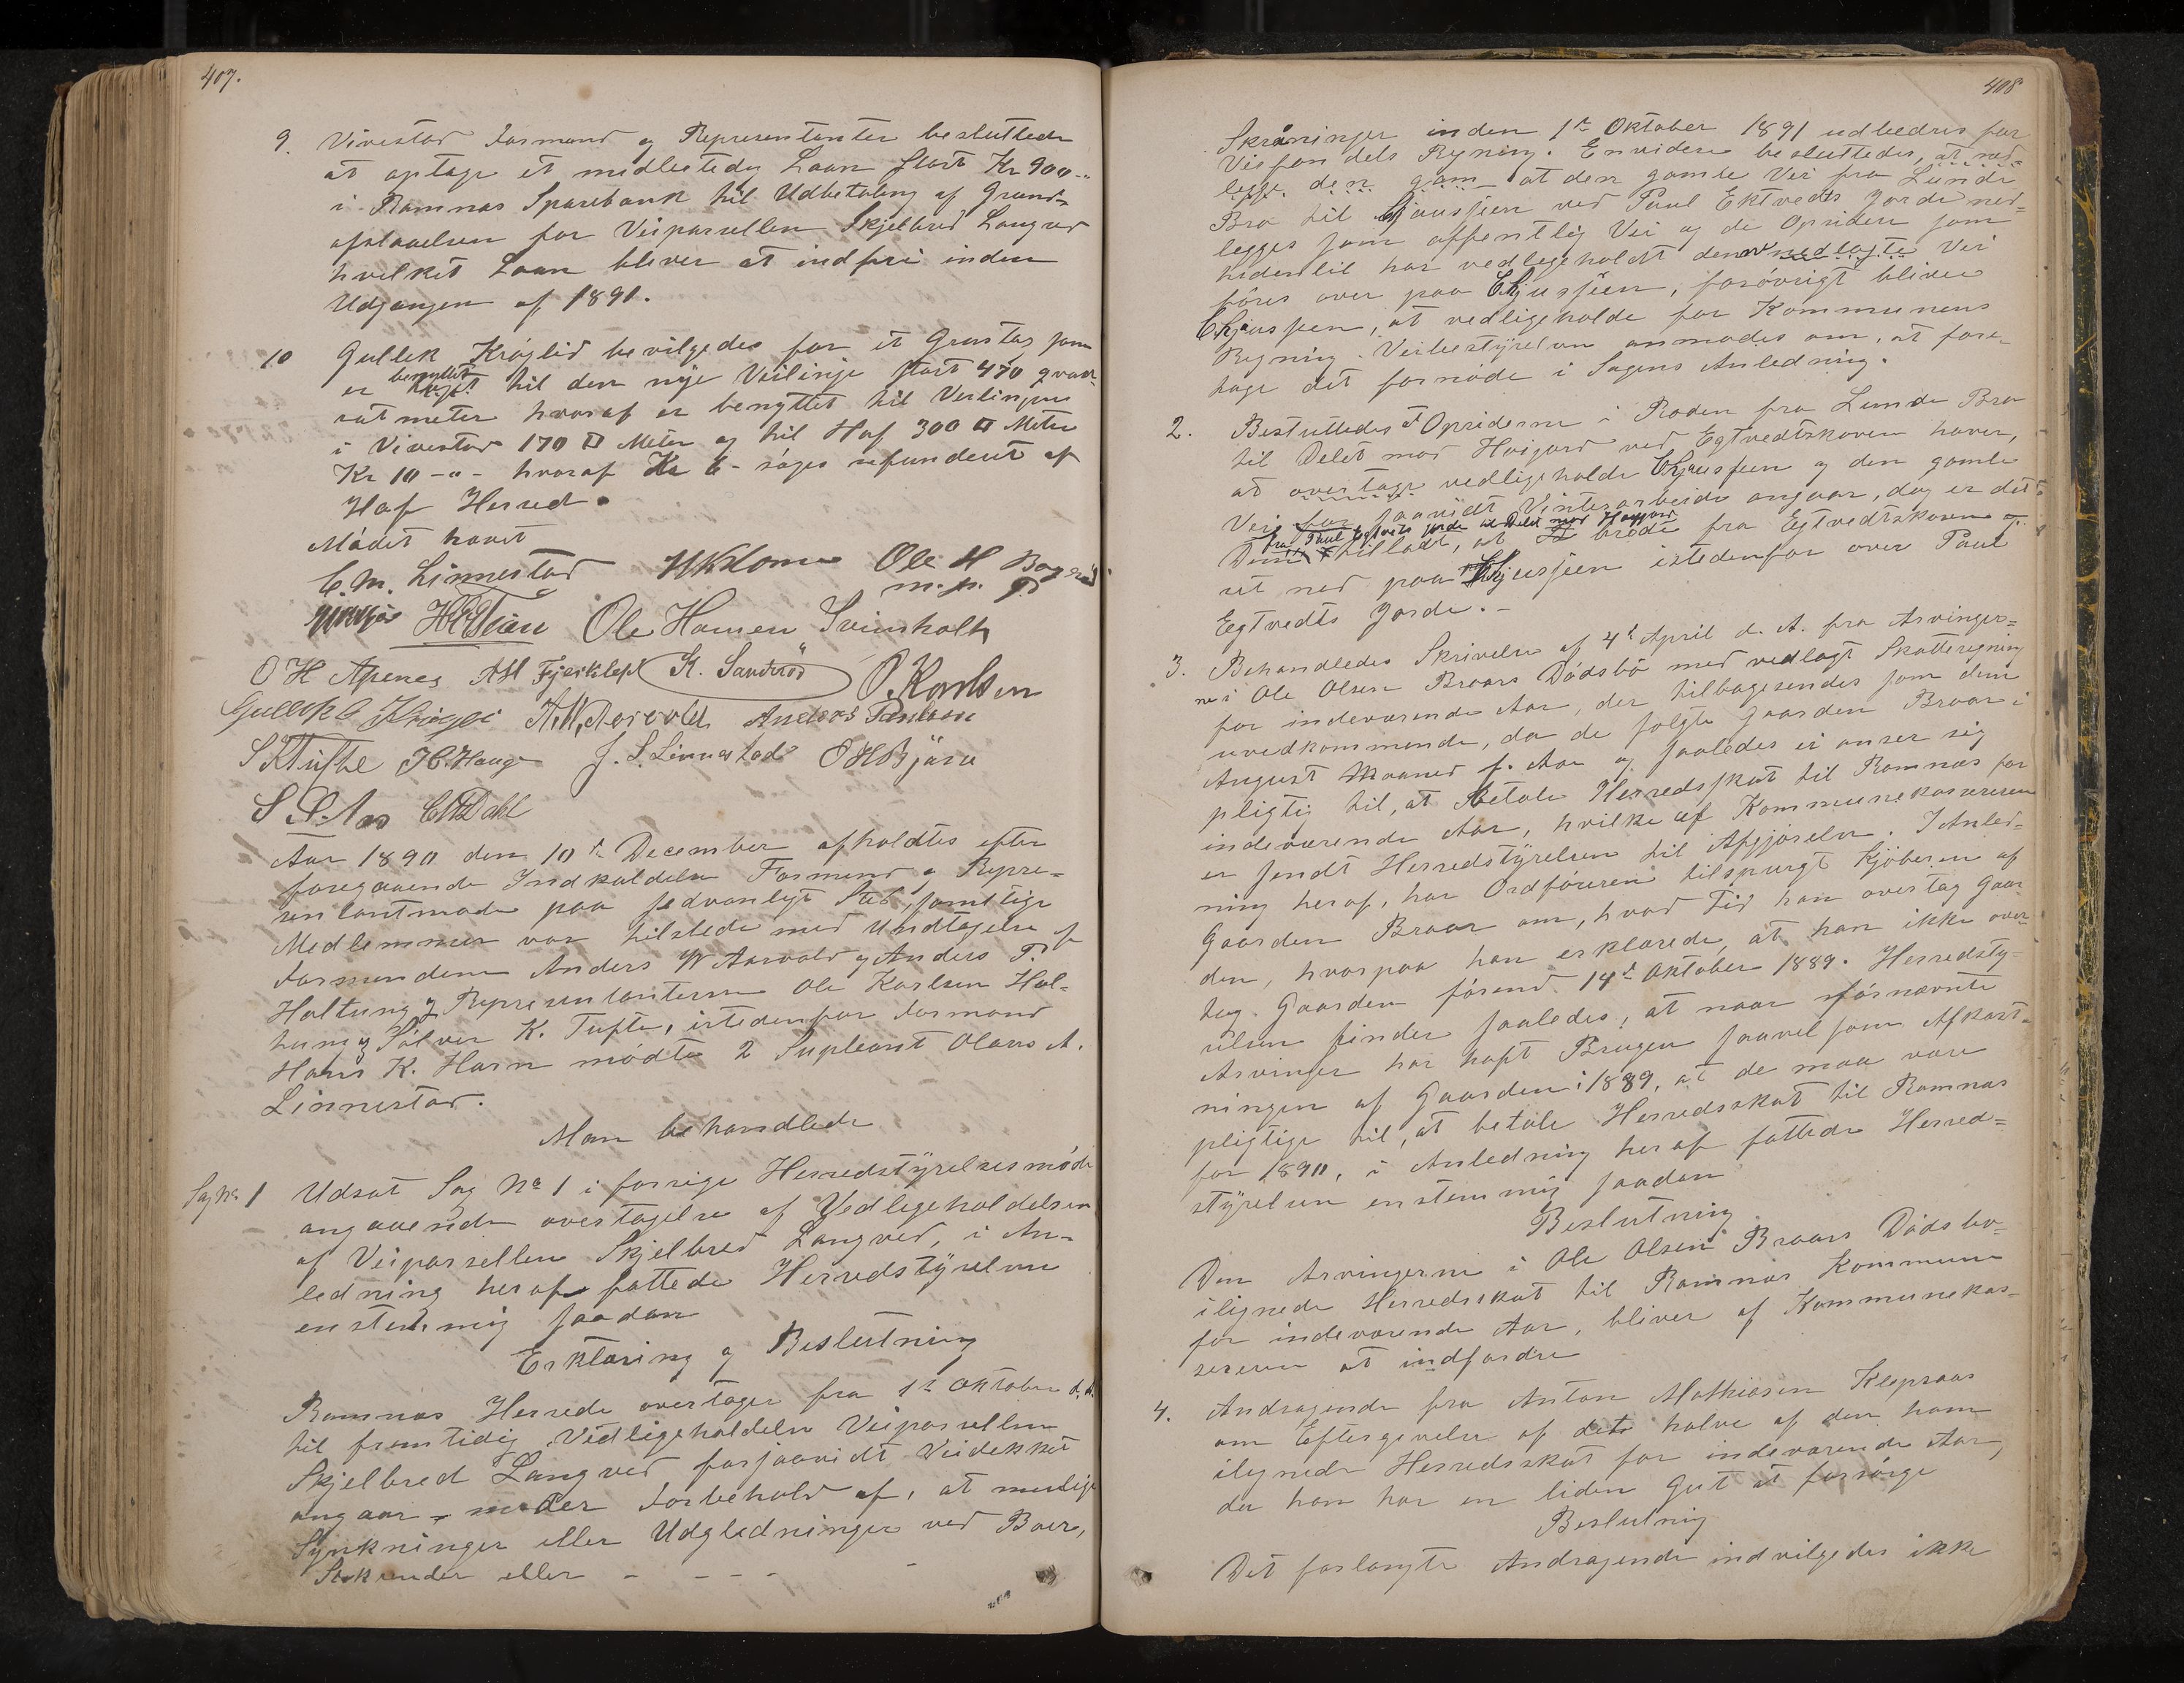 407.
9. Vivestad Formend og Representanter besluttede
at optage et midlertidig Laan stort Kr 900-„
i Ramnas Sparebank til Udbetaling af Grund-
afstaaelsen for Veiparsellen Skjelbred Langved
hvilket Laan bliver at indfri inden
Udgangen af 1891.
10 Gullek Krøglid bevilgedes for et Grustag som
er benyttet til den nye Veilinje stort 470 qvad-
rat meter hvoraf er benyttet til Veilinjen
i Vivestad 170 □ Meter og til Hof 300 □ Meter
Kr 10-„- hvoraf Kr 6- søges refunderet af
Hof Herred.
Mødet hævet
C. M. Linnestad Ole H
m. p. P.
Ole Hansen Svinholt
O H Apenes K. Sandsrød O. Karlsen
A. W. Aorvold Anders Paulsen
S K Tufte H. Hauge J. S. Linnestad O H Bjøre
S. S. Aas C Dahl
Aar 1890 den 10de December afholdtes efter
foregaaende Indkaldelse Formend og Repre-
sentantmøde paa sedvanligt Sted, samtlige
Medlemmer var tilstede med Undtagelse af
Formendene Anders W Aarvold og Anders P.
Holtung og Representanterne Ole Karlsen Hol-
tung og Sølver K. Tufte, istedenfor Formand
Hans K. Horn mødte 2 Supleant Olavs A.
Linnestad.
Man behandlede
Sag No 1 Udsat Sag No 1 i forrige Herredstyrelsesmøde
angaaende overtagelse af Vedlegeholdelsen
af Veiparsellen Skjelbred Langved, i An-
ledning heraf fattede Herredstyrelsen
enstemmig saadan
Erklæring og Beslutning
Ramnas Herrede overtager fra 1ste Oktober d. A.
til fremtidig Vedligeholdelse Veiparsellen
Skjelbred Langved forsaavidt Veidekket
angaar, under Forbehold af, at mulige
Synkninger eller Udglidninger ved Boer,
Stikrender eller - - - - -
408
Skråninger inden 1ste Oktober 1891 udbedres for
Veifondets Regning. Envidere besluttedes, at ned-
legge den gam- at den gamle Vei fra Lunde
Bro til Chjausseen ved Paul Ektvedts Jorde ned-
legges som offentlig Vei og de Opsidere som
hidentil har vedlegeholdt den nedlagte Vei
føres over paa Chjausseen, forøvrigt bliver
Chjausseen, at vedligeholde for Kommunens
Regning. Veibestyrelsen anmodes om, at fore-
tage det fornøde i Sagens Anledning.
2. Besluttedes at Opsiderne i Roden fra Lunde Bro
til Delet mod Høigard ved Egtvedtskoven haver,
at overtage vedligeholde Chjausseen og den gamle
Vei for saavidt Vinterarbeide angaar, dog er det
fra Paul Egtvets jorde til Delet mod Høigard
Dem tilladt, at brøde fra Egtvedtskoven
ret ned paa Chjausseen istedenfor over Paul
Egtvedts Jorde.-
3. Behandledes Skrivelse af 4de April d. A. fra Arvinger-
ne i Ole Olsen Braars Dødsbo med vedlagt Skatteregning
for indeværende Aar, der tilbagesendes som dem
uvedkommende, da de solgte Gaarden Braar i
August Maaned f. Aar og saaledes ei anser sig
pligtig til, at betale Herredsskat til Ramnas for
indeværende Aar, hvilke af Kommunekassereren
er sendt Herredstyrelsen til Afgjørelse. I Anled-
ning heraf, har Ordføreren tilspurgt Kjøberen af
Gaarden Braar om, hvad Tid han overtog Gaar
den, hvorpaa han erklærede, at han ikke over
tog Gaarden førend 14de Oktober 1889. Herredsty-
relsen finder saaledes, at naar fornævnte
Arvinger har haft Brugen saavel som Afkast-
ningen af Gaarden i 1889, at de maa være
pligtige til, at betale Herredsskat til Ramnas
for 1890, i Anledning heraf fattede Herred-
styrelsen enstemmig saadan
Beslutning
Den Arvingerne i Ole Olsen Braars Dødsbo-
ilignede Herredsskat til Ramnas Kommune
for indeværende Aar, bliver af Kommunekas-
sereren at indfordre
4. Andragende fra Anton Mathisen Klepraas
om Eftergivelse af det halve af den ham
ilignede Herredsskat for indeværende Aar,
da han har en liden Gut at forsørge
Beslutning
Det forlangte Andragende indvilgedes ikke